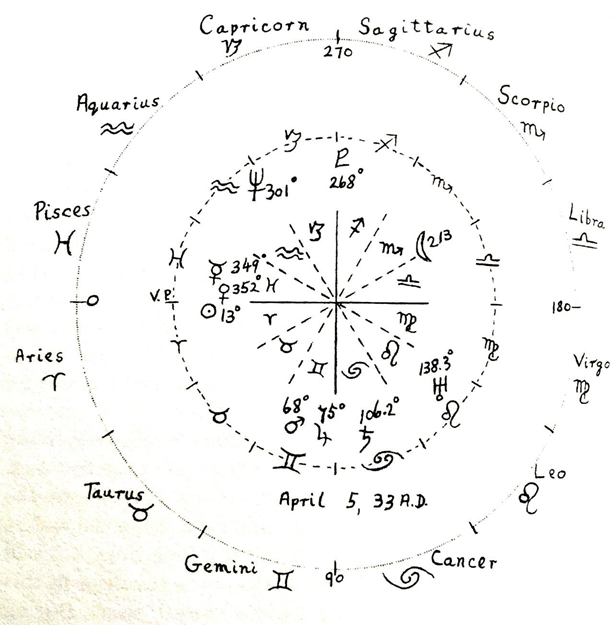 Capricorn Sagittarius
♑ ♐
270
Aquarius
♒
Scorpio
♏
♑ ♐
♇
268°
♒ ♆ 301° ♏
Pisces
♓
Libra
♎
♑ ♐
♒ ♏ ☾ 213
♓ ☿ 349° ♎ ♎
♀ 352° ♓
V.P.
0 180
☉ 13° ♈ ♍
Aries
♈
♈ ♍
Virgo
♍
♉ ♌
♊ ♋
138.3°
♅
♌
68° 75° 106.2°
♂ ♃ ♄
♉
♊ ♋
April 5, 33 A.D.
Taurus
♉
Leo
♌
Gemini ♊ 90 ♋ Cancer